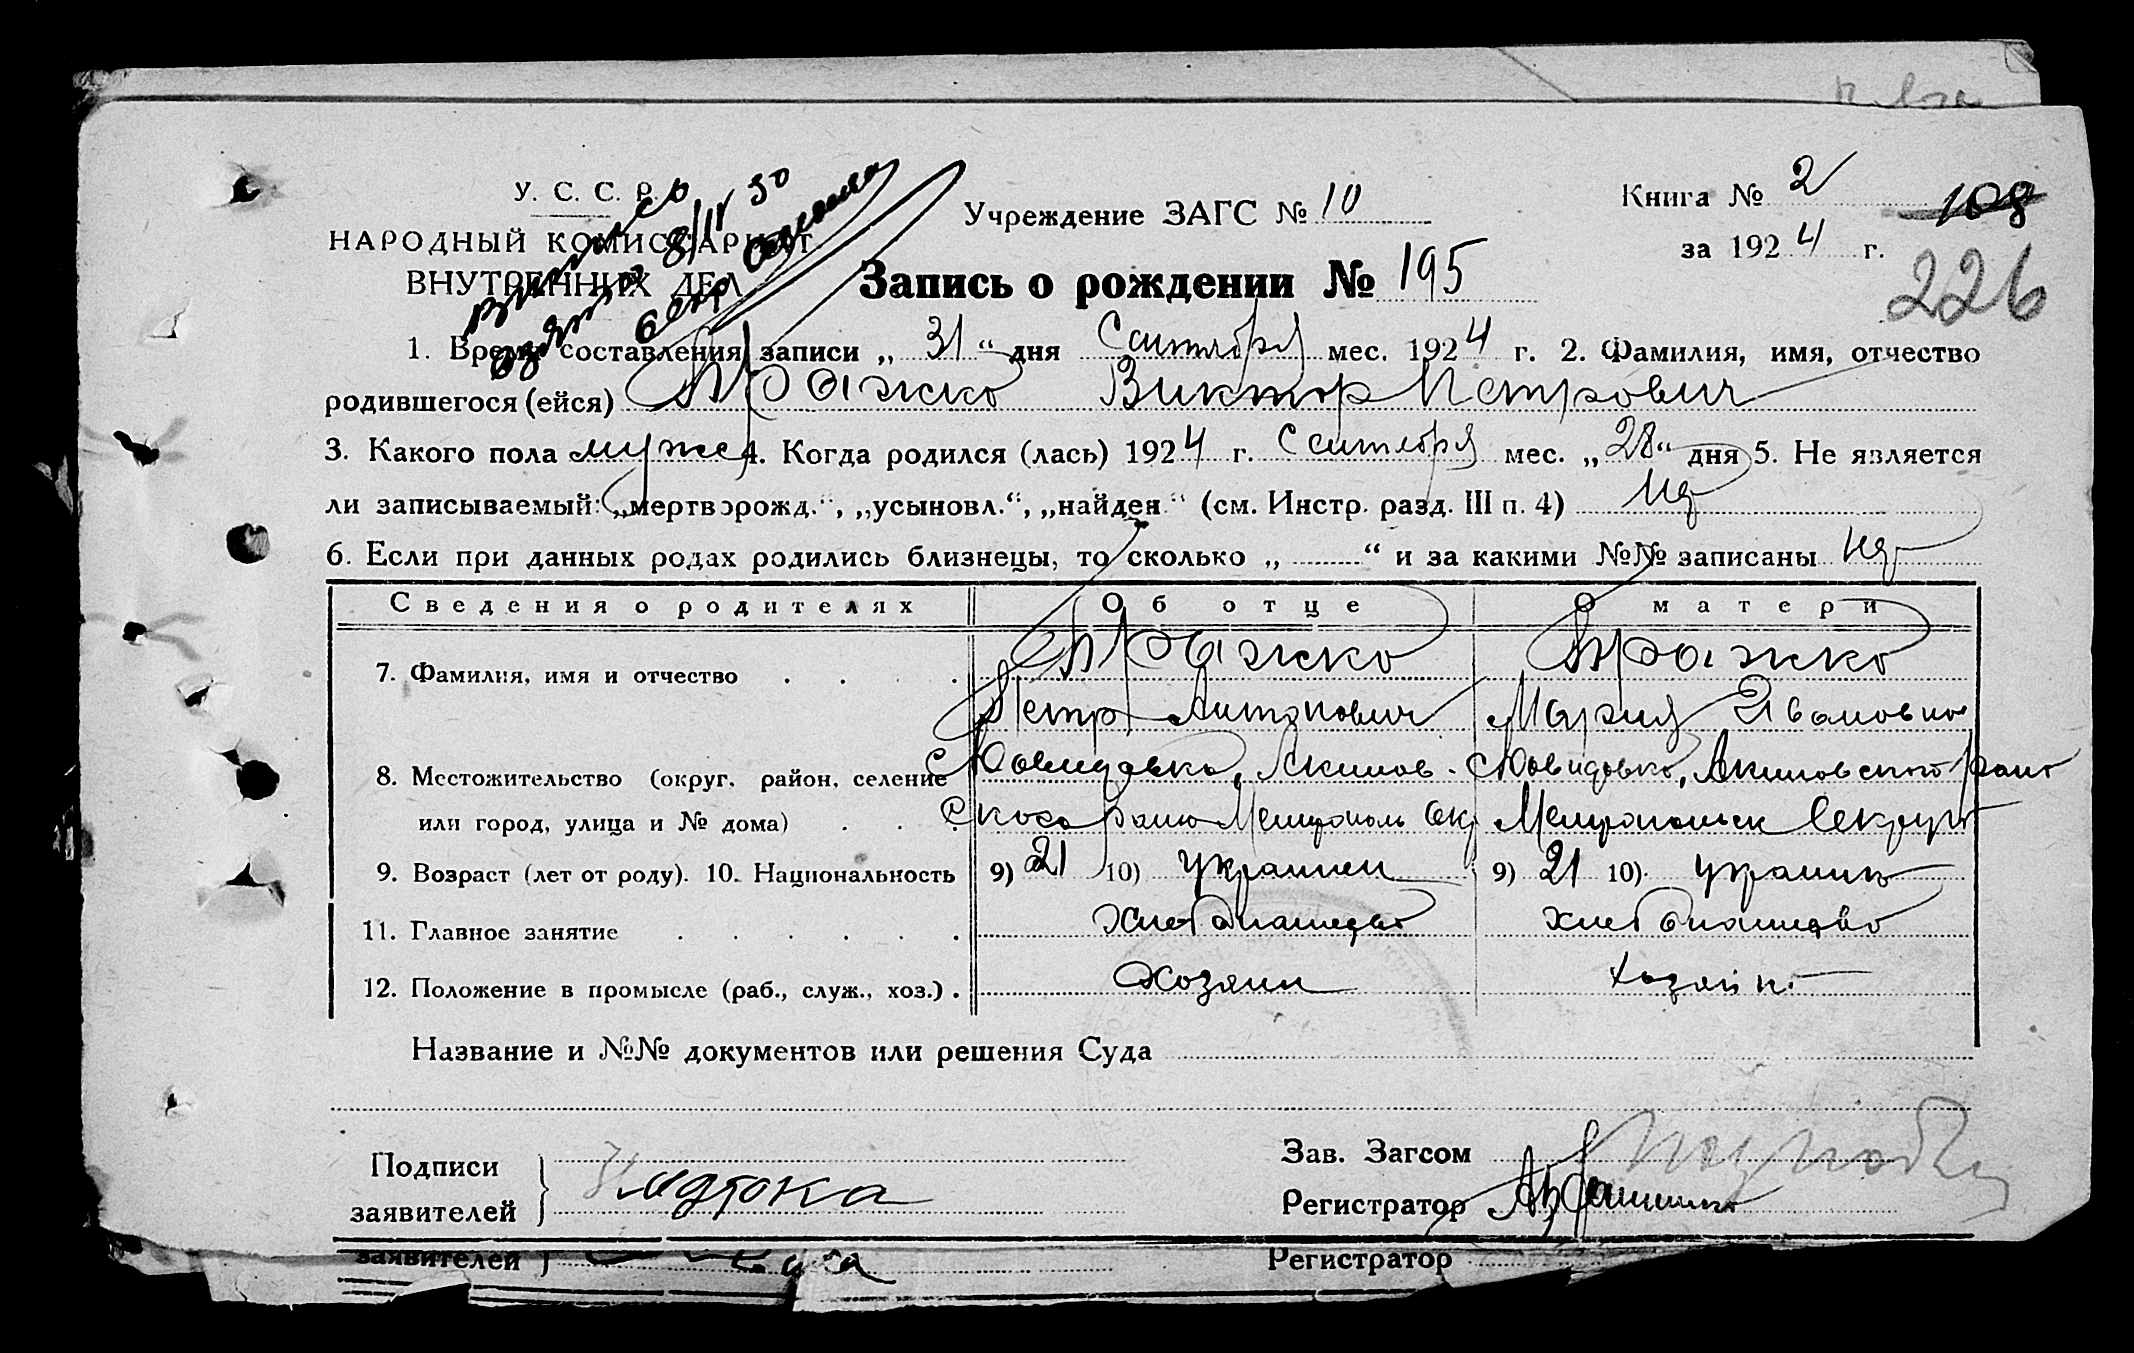 У. С. С. Р.
НАРОДНЫЙ КОМИССАРИАТ
ВНУТРЕННИХ ДЕЛ
Выпись
8/IV 30
Учреждение ЗАГС № 10
Книга № 2
108
за 1924 г.
226
Запись о рождении № 195
1. Время составления записи „31“ дня Сентября мес. 1924 г. 2. Фамилия, имя, отчество
родившегося (ейся) Пражко Виктор Петрович
3. Какого пола муж 4. Когда родился (лась) 1924 г. Сентября мес. „28“ дня 5. Не является
ли записываемый: „мертворожд.“, „усыновл.“, „найден“ (см. Инстр. разд. III п. 4)
6. Если при данных родах родились близнецы, то сколько „ “ и за какими №№ записаны
Сведения о родителях Об отце О матери
7. Фамилия, имя и отчество Пражко Пражко
Петр Антонович Мария Ивановна
8. Местожительство (округ, район, селение
или город, улица и № дома)
9. Возраст (лет от роду). 10. Национальность 9) 21 10) украинец 9) 21 10)
11. Главное занятие
12. Положение в промысле (раб., служ., хоз.) Хозяин
Название и №№ документов или решения Суда
Подписи
заявителей
Зав. Загсом
Регистратор
заявителей
Регистратор